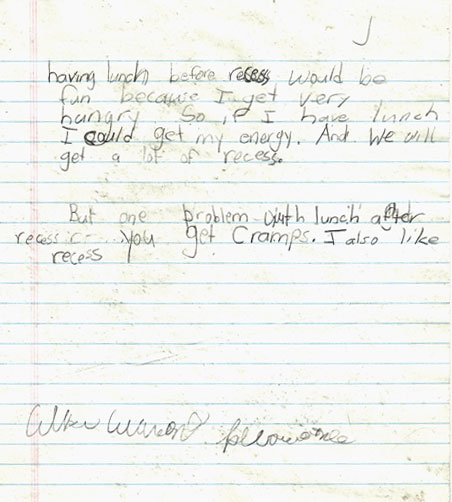 J
having lunch before recess would be
fun because I get very
hungry. So if I have lunch
I could get my energy. And We will
get a lot of recess.
But one problem with lunch after
recess is you get Cramps. I also like
recess